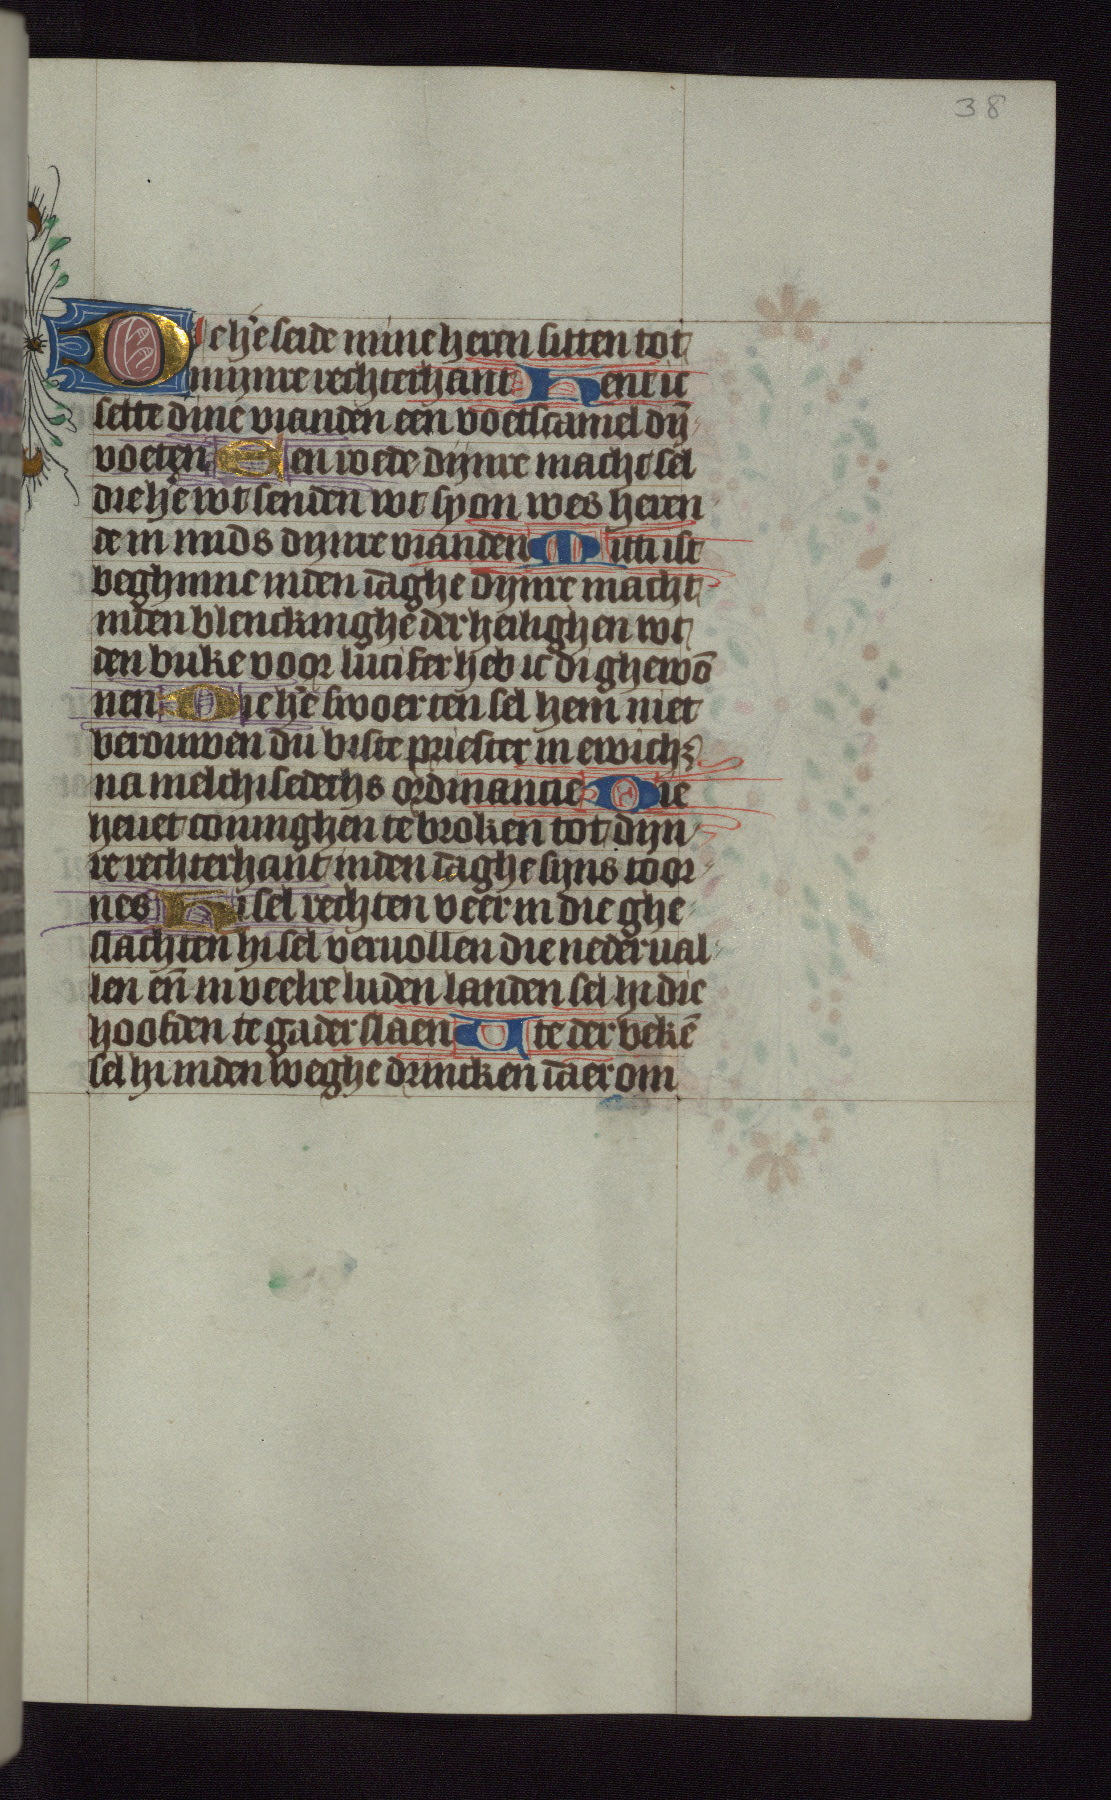 38
Die he᷒ seide mine heren sitten tot
mijnre rechterhant Hent ic
sette dine vianden een voetscamel dijn̄
voeten Een roede dijnre macht sel
die he᷒ wt senden wt syon wes heren
de in mids dijnre vianden Mitti ist
beghinne inden daghe dijnre macht
inden blenckinghe der heilighen wt
den buke voor lucifer heb ic di ghewō
nen Die he᷒ swoer ten sel hem niet
berouwen du biste priester in ewich᷒
na melchisedechs ordinancie Die
heuet coninghen te broken tot dijn
re rechterhant inden daghe sijns toor
nes Hi sel rechten veer in die ghe
slachten hi sel veruollen die nederual
len en̄ in veelre luden landen sel hi die
hoofden te gader slaen Vte der bekē
sel hi inden weghe drincken daerom